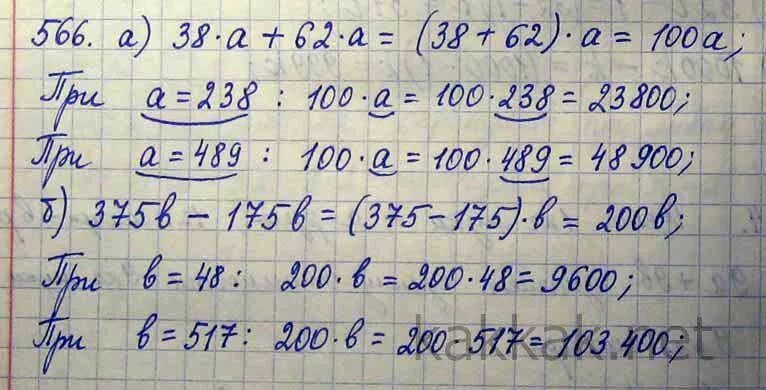 566. а) 38·а + 62·а = (38 + 62)·а = 100а;
При а = 238 : 100·а = 100·238 = 23800;
При а = 489 : 100·а = 100·489 = 48900;
б) 375в − 175в = (375 − 175)·в = 200в;
При в = 48 : 200·в = 200·48 = 9600;
При в = 517 : 200·в = 200·517 = 103.400;
kakkak.net